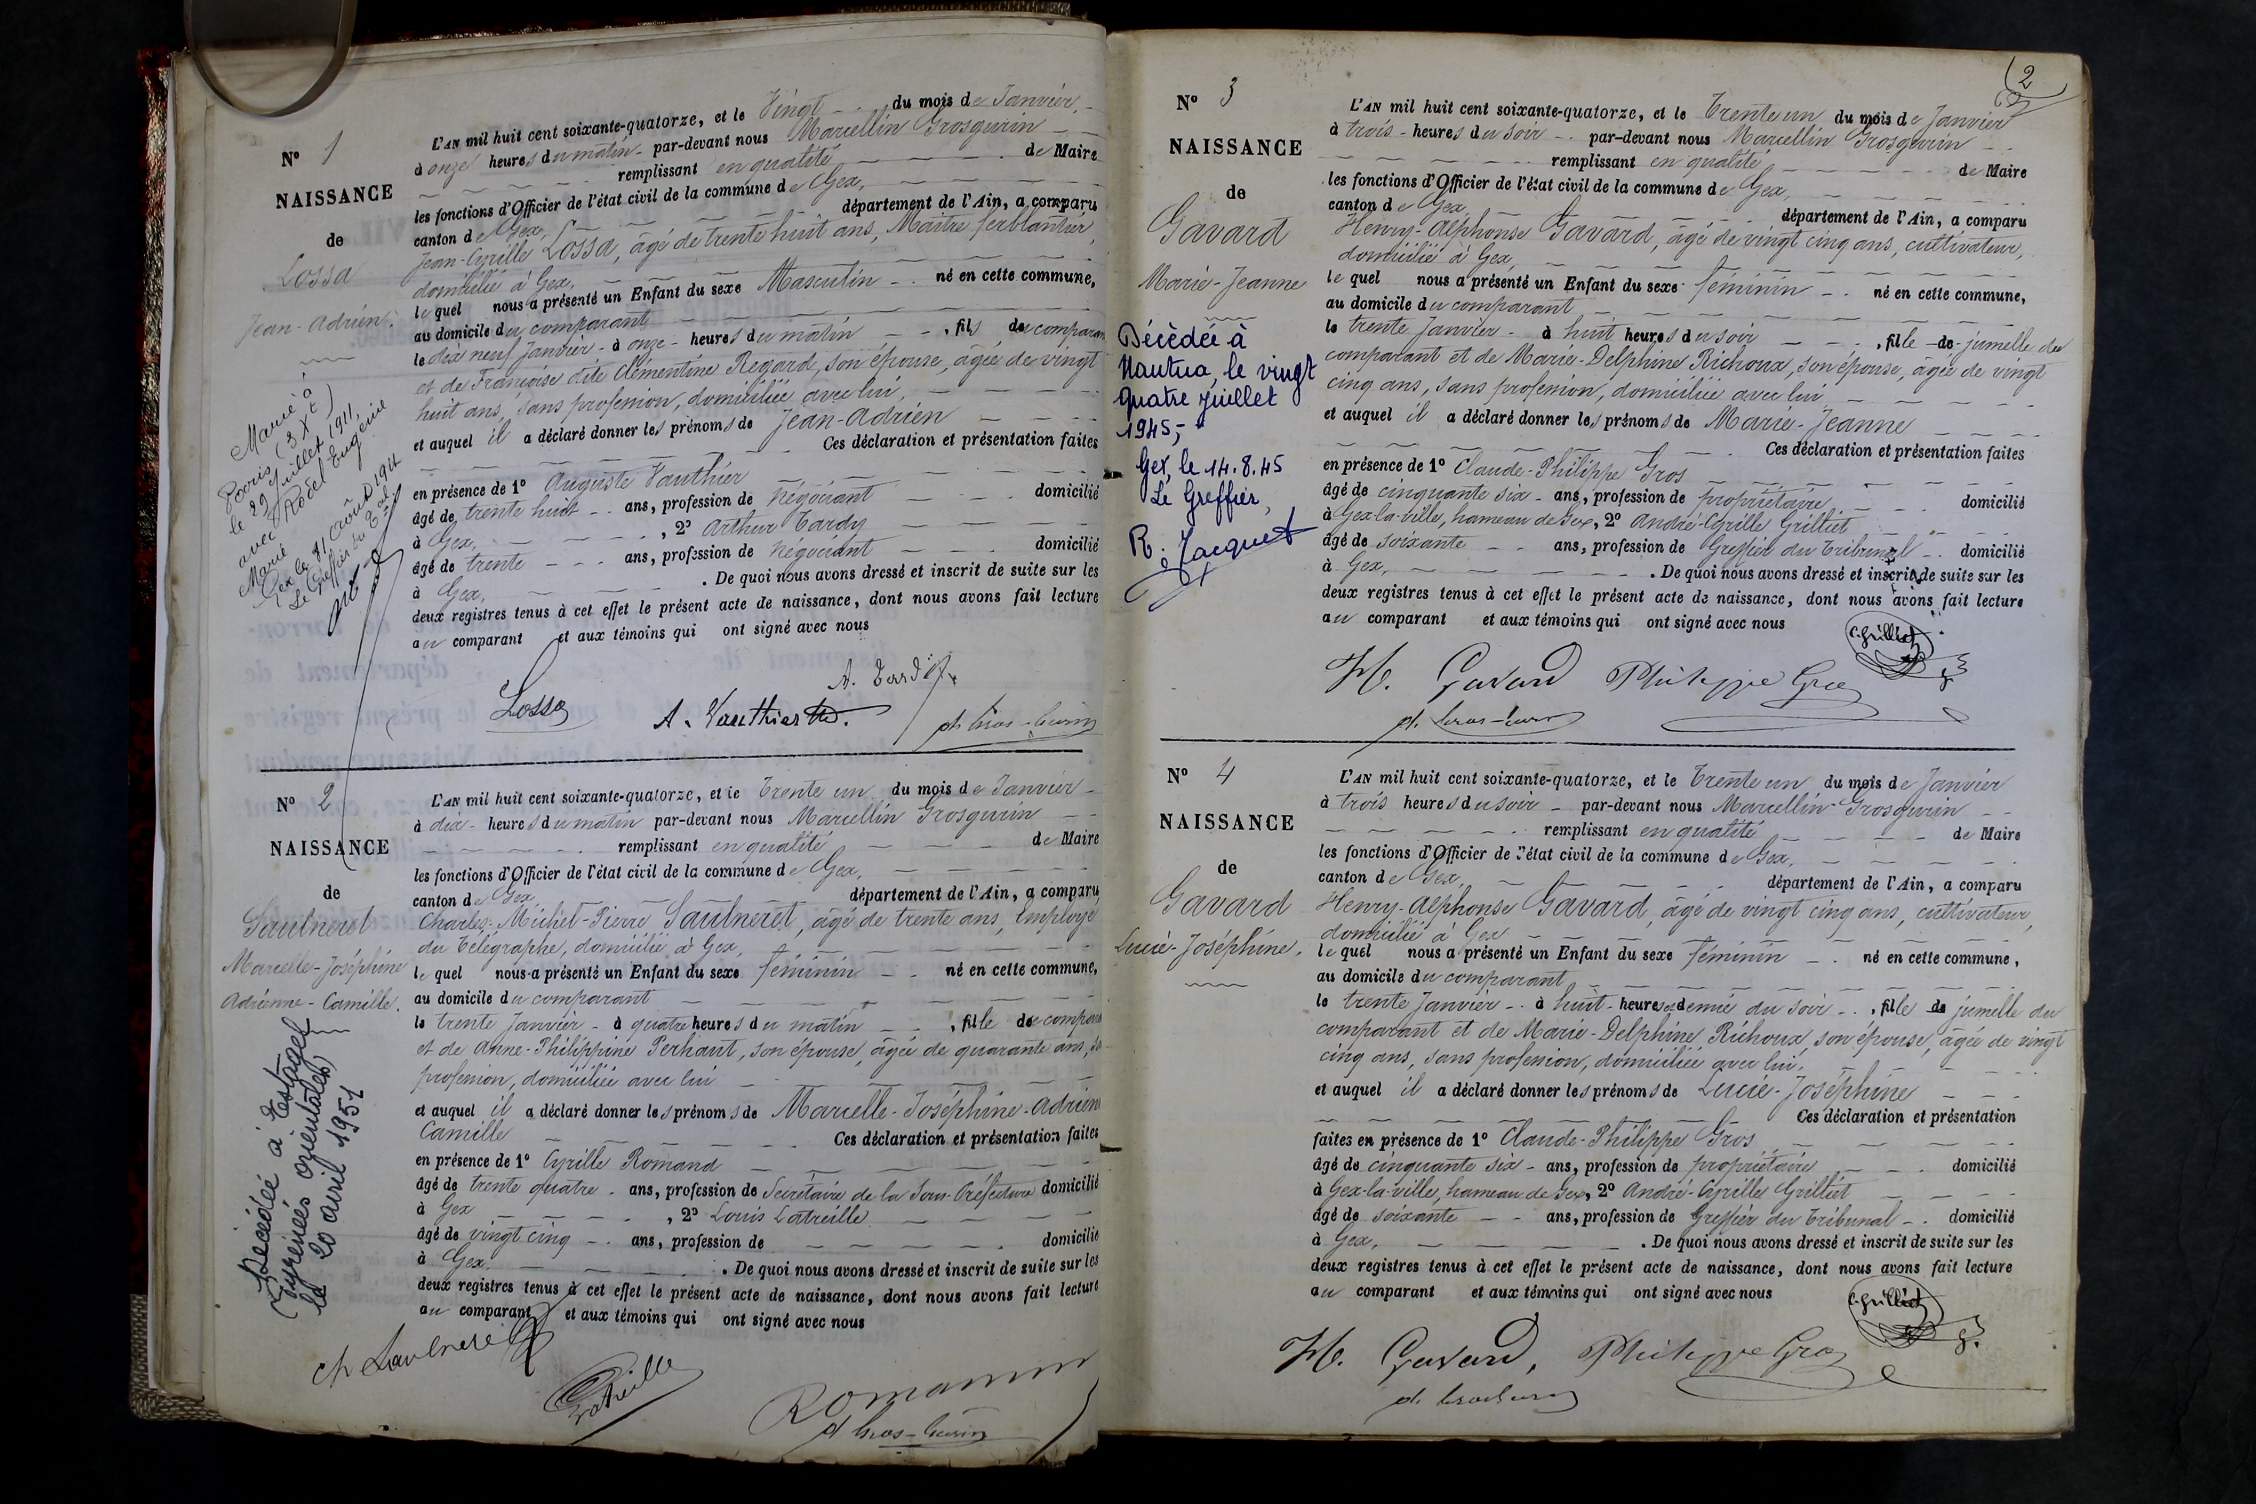 N° 1
NAISSANCE
de
Lossa
Jean-Adrien.
Marié à
Paris (3 Xt)
le 29 juillet 1911
avec Rodel Eugénie
Marie
Gex le 31 août 1911
Le Greffier du Tal
L'AN mil huit cent soixante-quatorze, et le Vingt du mois de Janvier,
à onze heures du matin par-devant nous Marcellin Grosgurin
remplissant en qualité de Maire
les fonctions d'Officier de l'état civil de la commune de Gex,
canton de Gex, département de l'Ain, a comparu
Jean-Cyrille Lossa, âgé de trente huit ans, Maitre ferblantier,
domicilié à Gex,
lequel nous a présenté un Enfant du sexe Masculin né en cette commune,
au domicile du comparant
le dix neuf Janvier à onze heures du matin, fils du comparant
et de Françoise dite Clémentine Regard, son épouse, âgée de vingt
huit ans, sans profession, domiciliée avec lui,
et auquel il a déclaré donner les prénoms de Jean-Adrien
Ces déclaration et présentation faites
en présence de 1° Auguste Vauthier
âgé de trente huit ans, profession de Négociant domicilié
à Gex, , 2° Arthur Tardy
âgé de trente ans, profession de Négociant domicilié
à Gex, . De quoi nous avons dressé et inscrit de suite sur les
deux registres tenus à cet effet le présent acte de naissance, dont nous avons fait lecture
au comparant et aux témoins qui ont signé avec nous
Lossa A. Vauthier A. Tardy
M. Gros-Gurin
N° 2
NAISSANCE
de
Saulneret
Marcelle-Joséphine
Adrienne-Camille.
Décédée à Estagel
(Pyrénées orientales)
le 20 avril 1951
L'AN mil huit cent soixante-quatorze, et le Trente un du mois de Janvier
à dix heures du matin par-devant nous Marcellin Grosgurin
remplissant en qualité de Maire
les fonctions d'Officier de l'état civil de la commune de Gex,
canton de Gex, département de l'Ain, a comparu
Charles-Michel-Pierre Saulneret, âgé de trente ans, Employé
du Télégraphe, domicilié à Gex,
lequel nous a présenté un Enfant du sexe féminin né en cette commune,
au domicile du comparant
le trente Janvier à quatre heures du matin, fille de compara
et de Anne-Philippine Perhaut, son épouse, âgée de quarante ans, sa
profession, domiciliée avec lui
et auquel il a déclaré donner les prénoms de Marcelle-Joséphine-Adrienn
Camille Ces déclaration et présentation faites
en présence de 1° Cyrille Romand
âgé de trente quatre ans, profession de Secrétaire de la Sous-Préfecture domicilié
à Gex , 2° Louis Latreille
âgé de vingt cinq ans, profession de domicilié
à Gex. . De quoi nous avons dressé et inscrit de suite sur les
deux registres tenus à cet effet le présent acte de naissance, dont nous avons fait lecture
au comparant et aux témoins qui ont signé avec nous
Ch Saulneret
Latreille
Romann
M Gros-Gurin
2
N° 3
NAISSANCE
de
Gavard
Marie-Jeanne
Décèdée à
Nantua, le vingt
quatre juillet
1945,-
Gex, le 14.8.45
Le Greffier,
R. Jacquet
L'AN mil huit cent soixante-quatorze, et le Trente un du mois de Janvier
à trois heures du soir par-devant nous Marcellin Grosgurin
remplissant en qualité de Maire
les fonctions d'Officier de l'état civil de la commune de Gex,
canton de Gex, département de l'Ain, a comparu
Henry-Alphonse Gavard, âgé de vingt cinq ans, cultivateur,
domicilié à Gex,
lequel nous a présenté un Enfant du sexe féminin né en cette commune,
au domicile du comparant
le trente Janvier à huit heures du soir, fille de jumelle du
comparant et de Marie-Delphine Richoux, son épouse, âgée de vingt
cinq ans, sans profession, domiciliée avec lui
et auquel il a déclaré donner les prénoms de Marie-Jeanne
Ces déclaration et présentation faites
en présence de 1° Claude-Philippe Gros
âgé de cinquante six ans, profession de propriétaire domicilié
à Gex-la-ville, hameau de Gex, 2° André-Cyrille Grilliet
âgé de soixante ans, profession de Greffier du Tribunal domicilié
à Gex, . De quoi nous avons dressé et inscrit de suite sur les
deux registres tenus à cet effet le présent acte de naissance, dont nous avons fait lecture
au comparant et aux témoins qui ont signé avec nous
C. Grilliet
H. Gavard Philippe Gros
M. Gros-Gurin
N° 4
NAISSANCE
de
Gavard
Lucie-Joséphine.
L'AN mil huit cent soixante-quatorze, et le Trente un du mois de Janvier
à trois heures du soir par-devant nous Marcellin Grosgurin
remplissant en qualité de Maire
les fonctions d'Officier de l'état civil de la commune de Gex,
canton de Gex, département de l'Ain, a comparu
Henry-Alphonse Gavard, âgé de vingt cinq ans, cultivateur,
domicilié à Gex
lequel nous a présenté un Enfant du sexe féminin né en cette commune,
au domicile du comparant
le trente Janvier à huit heures et demie du soir, fille de jumelle du
comparant et de Marie-Delphine Richoux, son épouse, âgée de vingt
cinq ans, sans profession, domiciliée avec lui.
et auquel il a déclaré donner les prénoms de Lucie-Joséphine
Ces déclaration et présentation
faites en présence de 1° Claude-Philippe Gros
âgé de cinquante six ans, profession de propriétaire domicilié
à Gex-la-ville, hameau de Gex, 2° André-Cyrille Grilliet
âgé de soixante ans, profession de Greffier du Tribunal domicilié
à Gex, . De quoi nous avons dressé et inscrit de suite sur les
deux registres tenus à cet effet le présent acte de naissance, dont nous avons fait lecture
au comparant et aux témoins qui ont signé avec nous
C. Grilliet
H. Gavard, Philippe Gros
M. Gros-Gurin